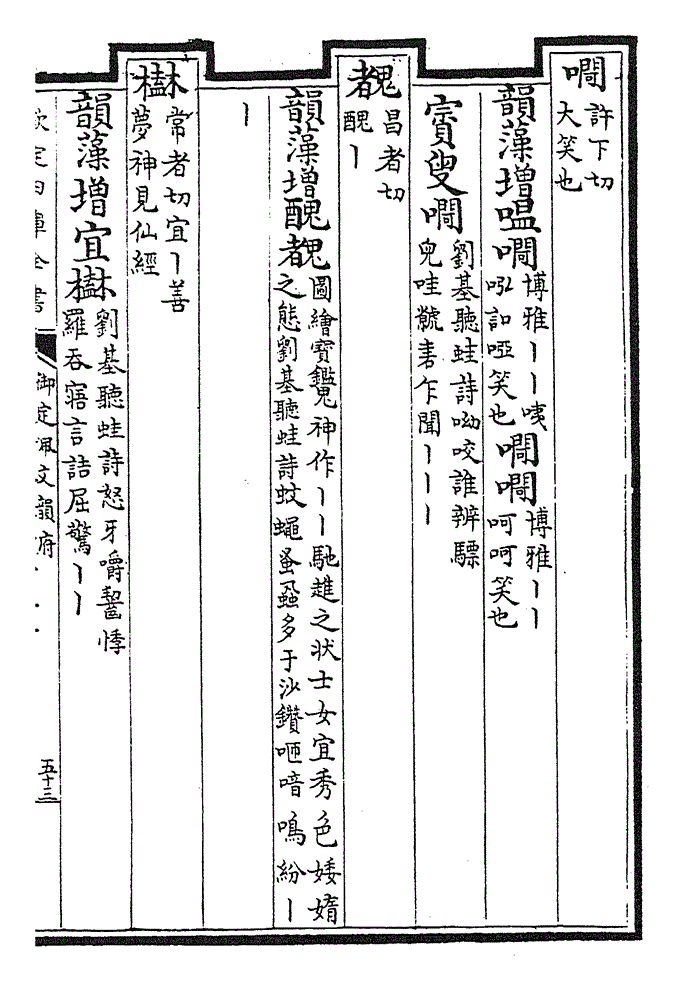 㗇許下切大笑也
韻藻增嗢㗇博雅丨丨咦吲訠啞笑也㗇㗇博雅丨丨呵呵笑也
賨叟㗇劉基聽蛙詩呦咬誰辨驃兠哇虩砉乍聞丨丨丨
䰩昌者切醜丨
韻藻增醜䰩圖繪寶鑑鬼神作丨丨馳趡之狀士女宜秀色婑媠之態劉基聽蛙詩蚊蠅蚤蝨多于沙鑽咂喑鳴紛丨
丨
常者切宜丨善夢神見仙經
韻藻增宜劉基聽蛙詩怒牙嚼齧悸羅吞寤言詰屈驚丨丨
欽定四庫全書 御定佩文韻府 五十三